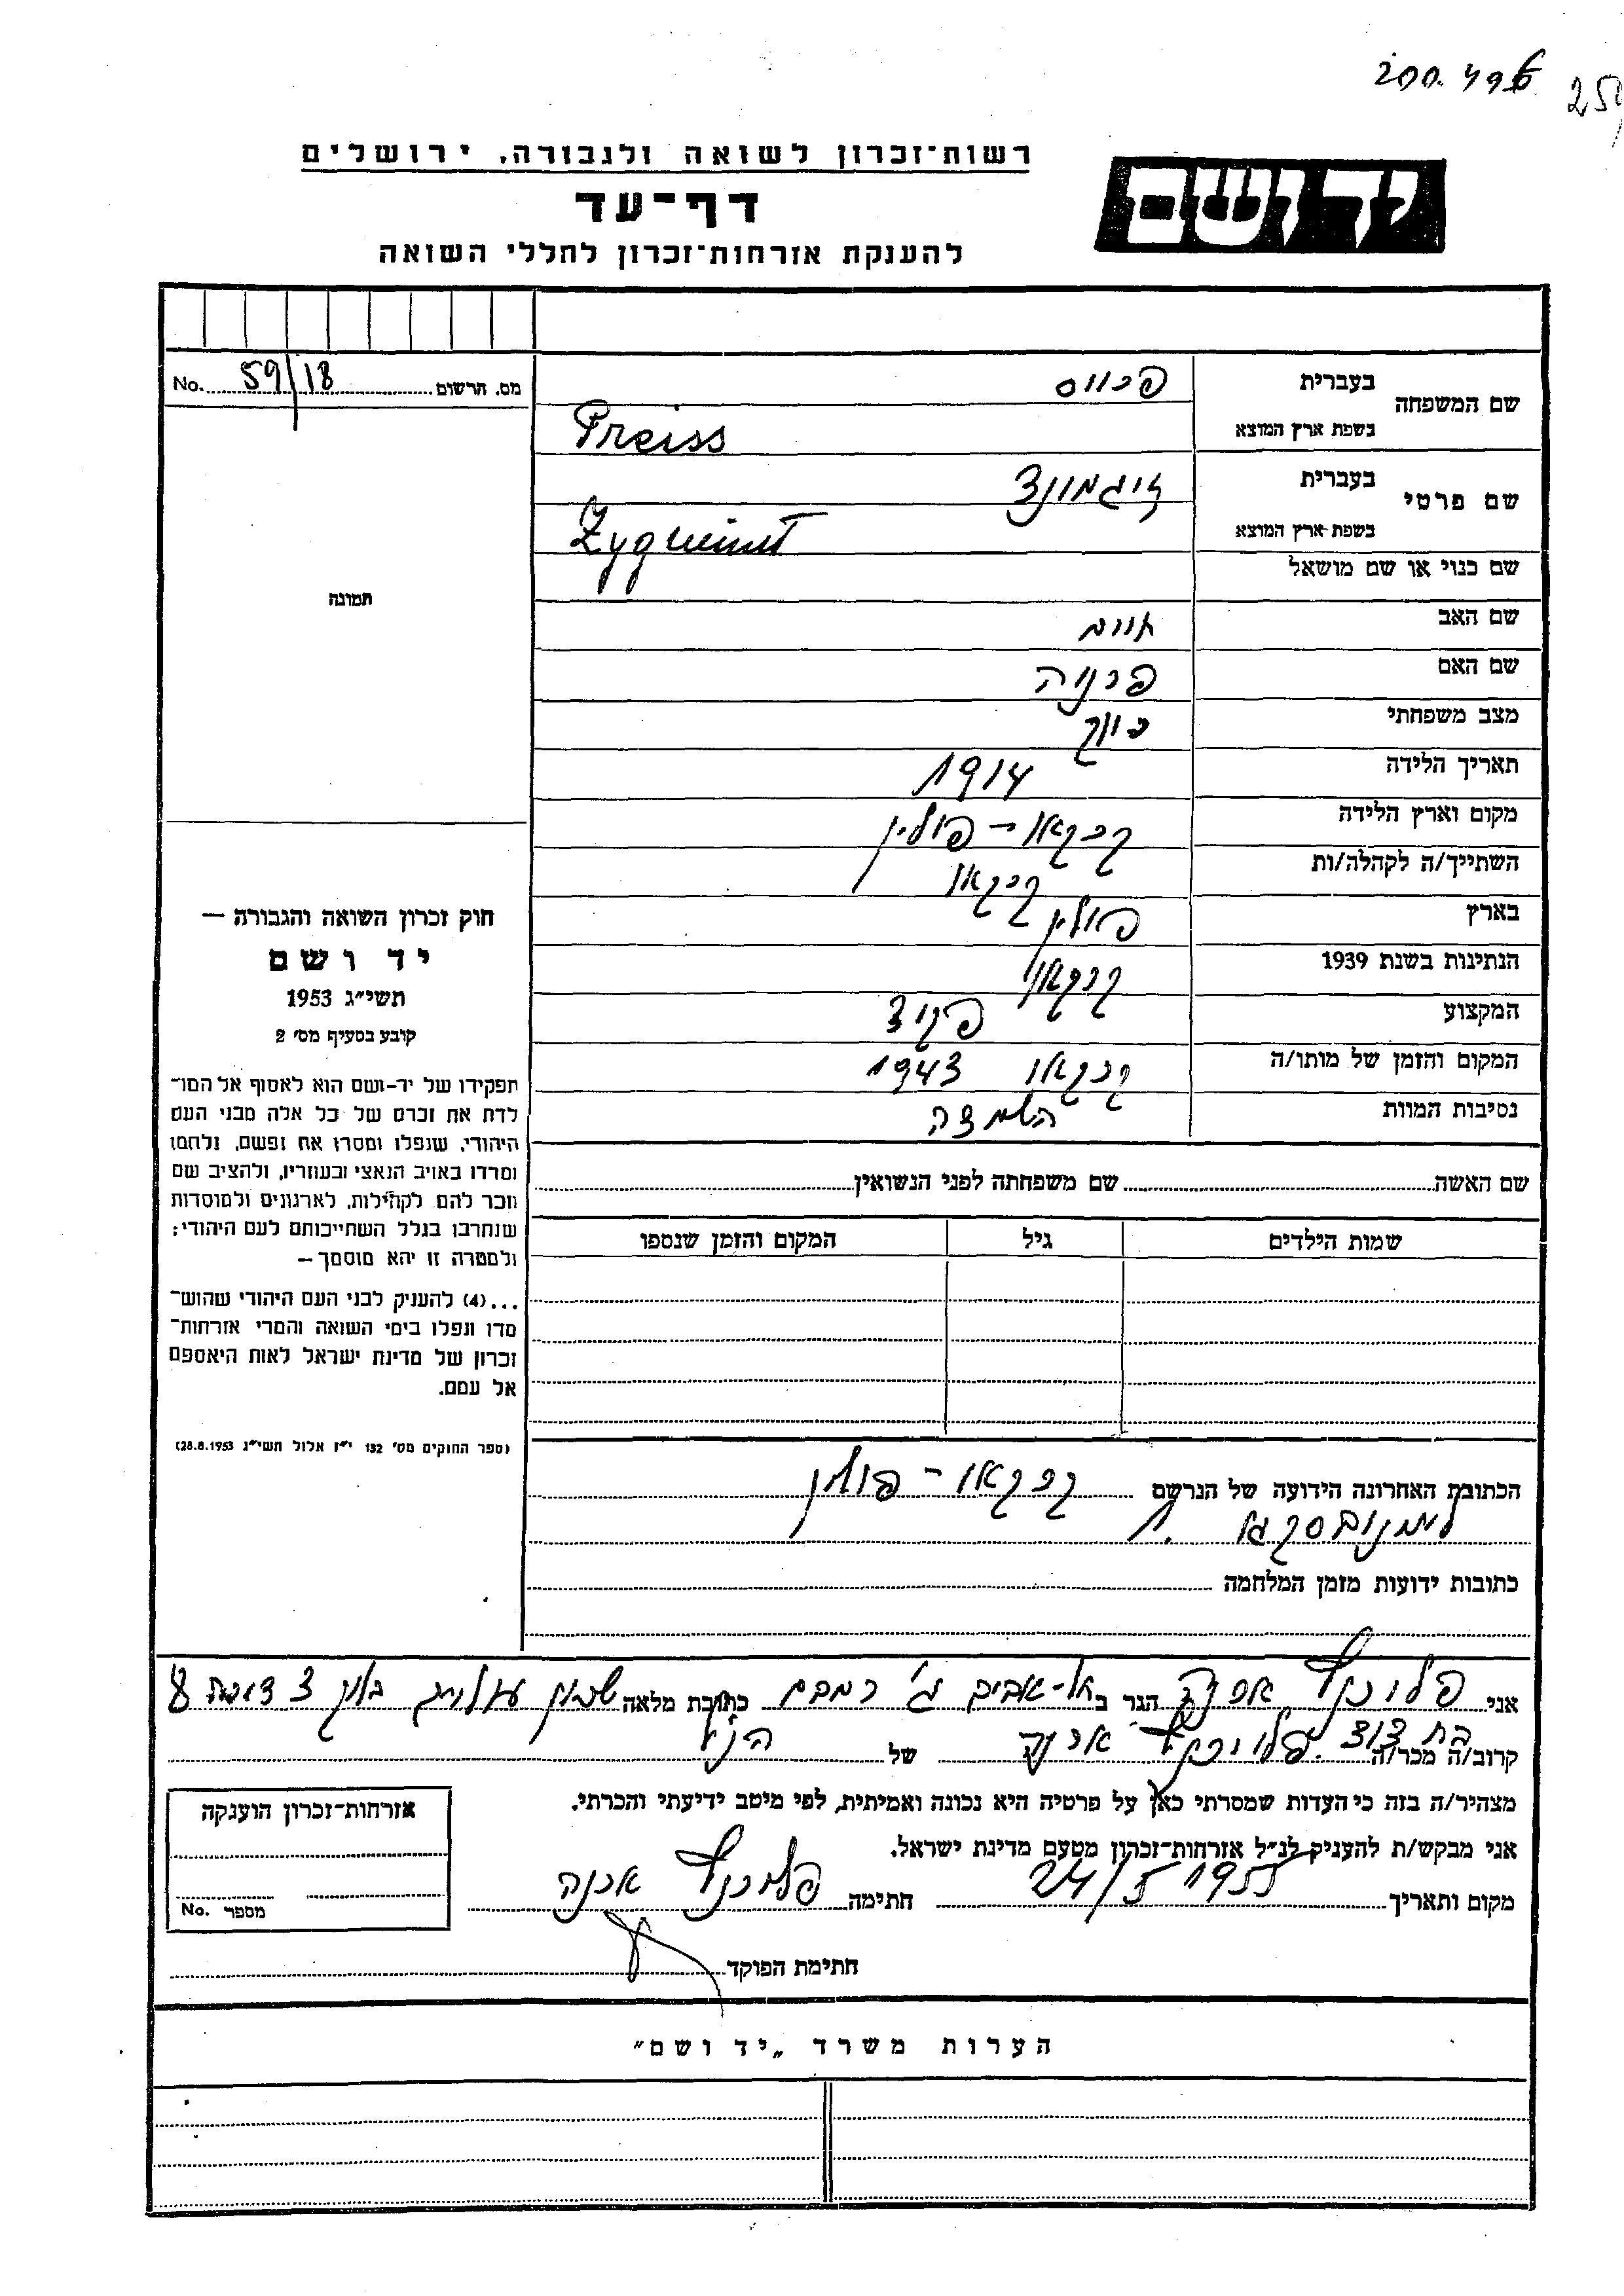 רשות־זכרון לשואה ולגבורה, ירושלים
יד ושם
דף־עד
להענקת אזרחות־זכרון לחללי השואה
שם המשפחה
בעברית
פרייס
בשפת ארץ המוצא
Preiss
שם פרטי
בעברית
זיגמונד
בשפת ארץ המוצא
Zygmunt
שם כנוי או שם מושאל
שם האב חיים
שם האם
מצב משפחתי רווק
תאריך הלידה 1914
מקום וארץ הלידה קרקאו - פולין
השתייך/ה לקהלה/ות קרקאו
בארץ פולין
הנתינות בשנת 1939
המקצוע פקיד
המקום והזמן של מותו/ה קרקאו 1943
נסיבות המוות השמדה
שם האשה שם משפחתה לפני הנשואין
שמות הילדים גיל המקום והזמן שנספו
הכתובת האחרונה הידועה של הנרשם קרקאו - פולין
כתובות ידועות מזמן המלחמה
מס. הרשום 59/18 No.
תמונה
חוק זכרון השואה והגבורה —
יד ושם
תשי״ג 1953
קובע בסעיף מס׳ 2
תפקידו של יד־ושם הוא לאסוף אל המו־
לדת את זכרם של כל אלה מבני העם
היהודי, שנפלו ומסרו את נפשם, נלחמו
ומרדו באויב הנאצי ובעוזריו, ולהציב שם
וזכר להם לקהילות, לארגונים ולמוסדות
שנחרבו בגלל השתייכותם לעם היהודי;
ולמטרה זו יהא מוסמך —
...(4) להעניק לבני העם היהודי שהוש־
מדו ונפלו בימי השואה והמרי אזרחות־
זכרון של מדינת ישראל לאות היאספם
אל עמם.
(ספר החוקים מס׳ 132 י״ז אלול תשי״ג 28.8.1953)
אני הגר ב תל-אביב כתובת מלאה שכון
קרוב/ה מכר/ה בת דוד של הנ״ל
מצהיר/ה בזה כי העדות שמסרתי כאן על פרטיה היא נכונה ואמיתית, לפי מיטב ידיעתי והכרתי.
אני מבקש/ת להעניק לנ״ל אזרחות־זכרון מטעם מדינת ישראל.
מקום ותאריך 24/5 1955 חתימה
חתימת הפוקד
אזרחות־זכרון הוענקה
מספר No.
הערות משרד „יד ושם”